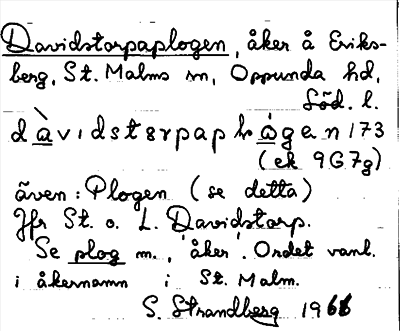 Davidstorpaplogen, åker å Eriks-
berg, St. Malms sn, Oppunda hd,
Söd. l.
173
(ek 9G7g)
även: Plogen (se detta)
Jfr St. o. L. Davidstorp.
Se plog m., 'åker'. Ordet vanl.
i åkernamn i St. Malm.
S. Strandberg 19